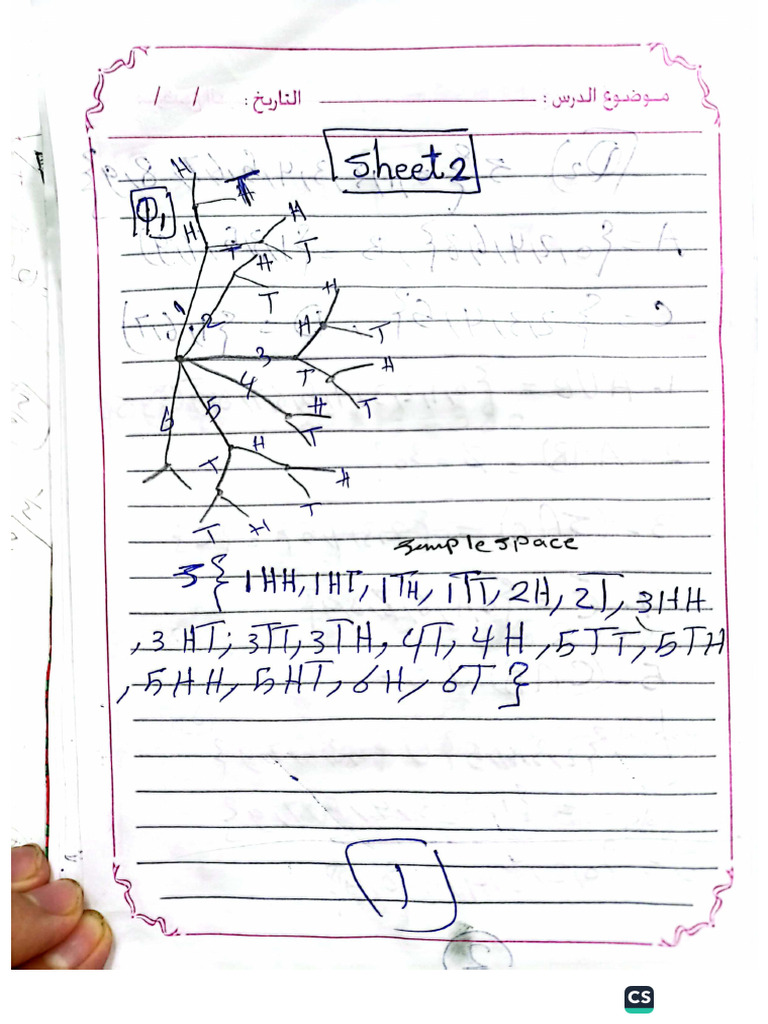 موضوع الدرس : التاريخ : / /
Sheet 2
Q1
H T
H H
T T
H
T
1 2 H
H T
3 H
T
4 T
H
5 T
6 H
T H
T
T H
sample space
S { 1HH, 1HT, 1TH, 1TT, 2H, 2T, 3HH
, 3HT, 3TT, 3TH, 4T, 4H, 5TT, 5TH
, 5HH, 5HT, 6H, 6T }
1
2
CS